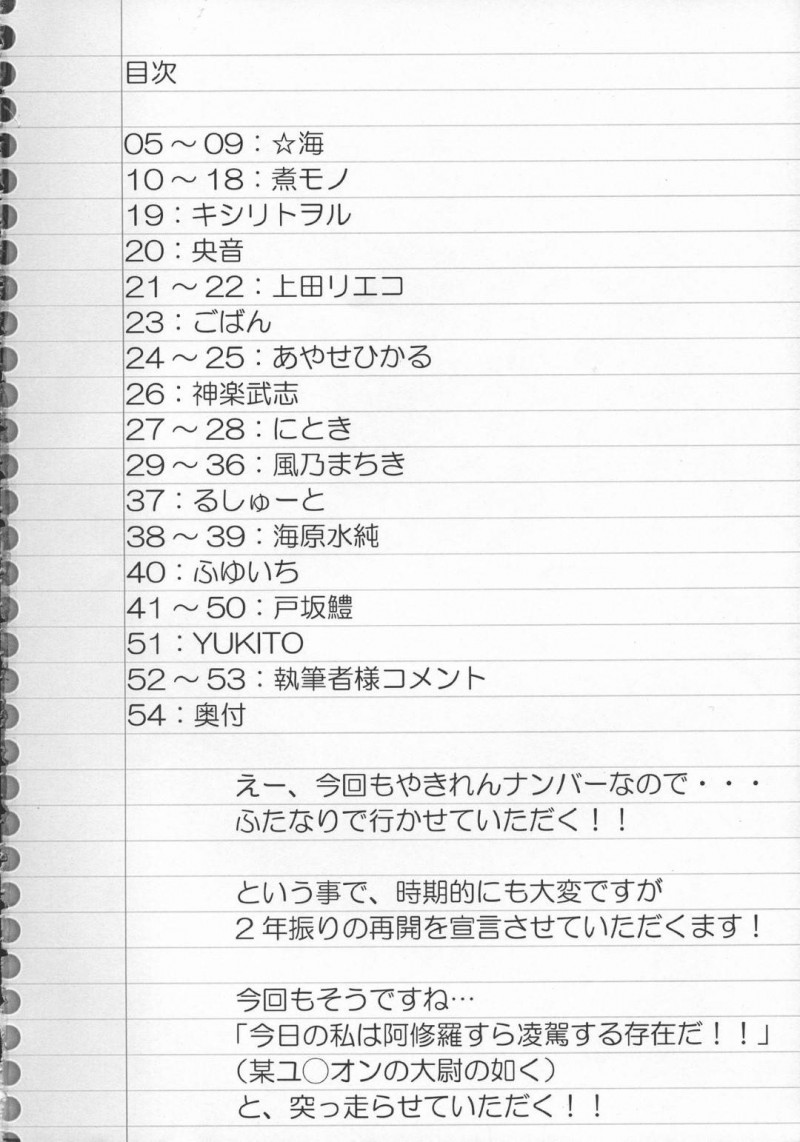 目次
05～09：☆海
10～18：煮モノ
19：キシリトヲル
20：央音
21～22：上田リエコ
23：ごばん
24～25：あやせひかる
26：神楽武志
27～28：にとき
29～36：風乃まちき
37：るしゅーと
38～39：海原水純
40：ふゆいち
41～50：戸坂鱧
51：YUKITO
52～53：執筆者様コメント
54：奥付
えー、今回もやきれんナンバーなので・・・
ふたなりで行かせていただく！！
という事で、時期的にも大変ですが
２年振りの再開を宣言させていただくます！
今回もそうですね…
「今日の私は阿修羅すら凌駕する存在だ！！」
（某ユ〇オンの大尉の如く）
と、突っ走らせていただく！！